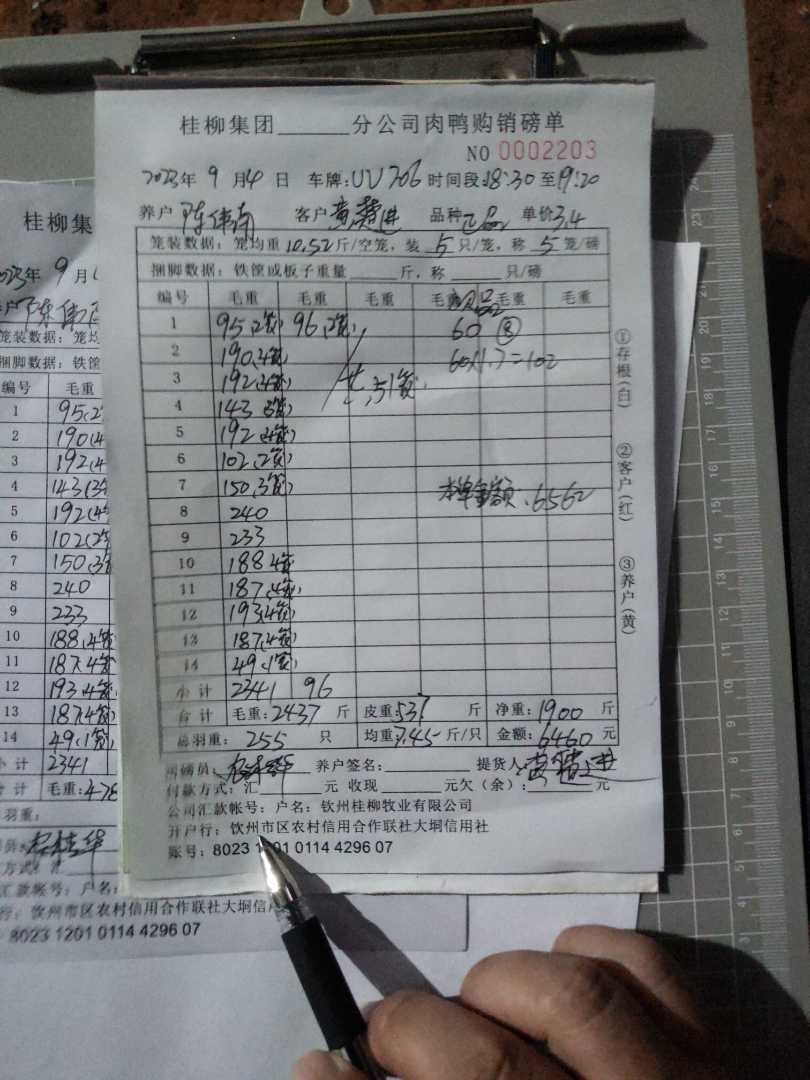 桂柳集团______分公司肉鸭购销磅单
NO 0002203
2023年 9 月 4 日 车牌:UV706 时间段:18:30 至 19:20
养户 陈伟南 客户 黄 进 品种 正品 单价 3.4
笼装数据：笼均重 10.52 斤/空笼，装 5 只/笼，称 5 笼/磅
捆脚数据：铁筐或板子重量______斤，称______只/磅
编号 毛重 毛重 毛重 毛重 毛重 毛重
1 95,2笼) 96,2笼) 60 ⑧
2 190,4笼) 60×1.7=102
3 192,4笼) 共,51笼,
4 143,3笼)
5 192,4笼)
6 102,2笼)
7 150,3笼) 本单金额:6562
8 240
9 233
10 188 4笼
11 187,4笼)
12 193,4笼)
13 187,4笼)
14 49,1笼)
小计 2341 96
合计 毛重:2437 斤 皮重:537 斤 净重:1900 斤
总羽重: 255 只 均重:7.45 斤/只 金额:6460 元
司磅员: 养户签名:______ 提货人: 黄 进
付款方式：汇______元 收现______元欠（余）:______元
公司汇款帐号：户名：钦州桂柳牧业有限公司
开户行：钦州市区农村信用合作联社大垌信用社
账号：8023 1201 0114 4296 07
①存根(白)
②客户(红)
③养户(黄)
桂柳集
2023年 9 月
户 陈伟南
笼装数据：笼均
捆脚数据：铁筐
编号 毛重
1 95,2
2 190(4
3 192,4
4 143(3
5 192(4
6 102(2
7 150,3
8 240
9 233
10 188,4笼
11 187,4笼
12 193,4笼
13 187,4笼)
14 49,1笼)
小计 2341
合计 毛重:478
总羽重:
方式：汇
汇款帐号：户名：
行：钦州市区农村信用合作联社大垌信用
8023 1201 0114 4296 07